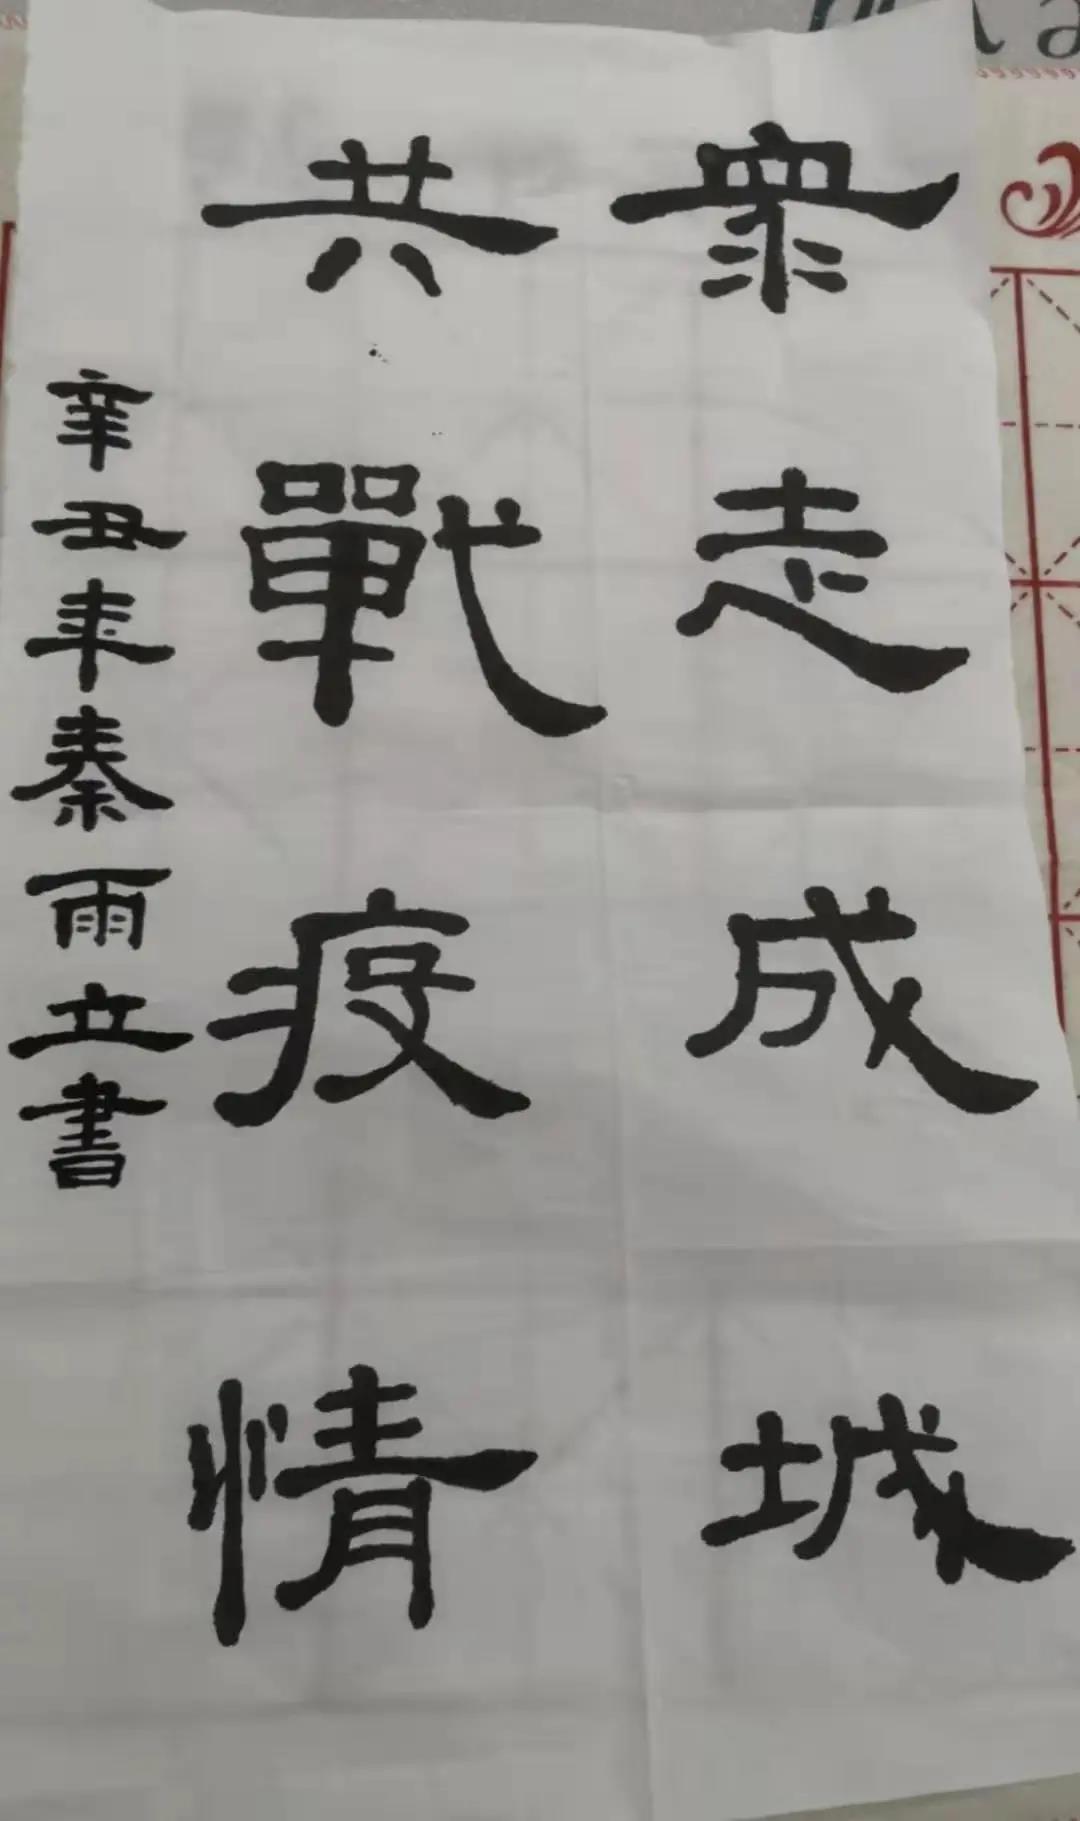 眾志成城
共戰疫情
辛丑年秦雨立書